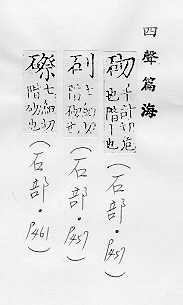 四聲篇海
砌 千計切
也階丨也
(石部・P457)
階砌也
(石部・P457)
磜 七細切
階砌也
(石部・P461)